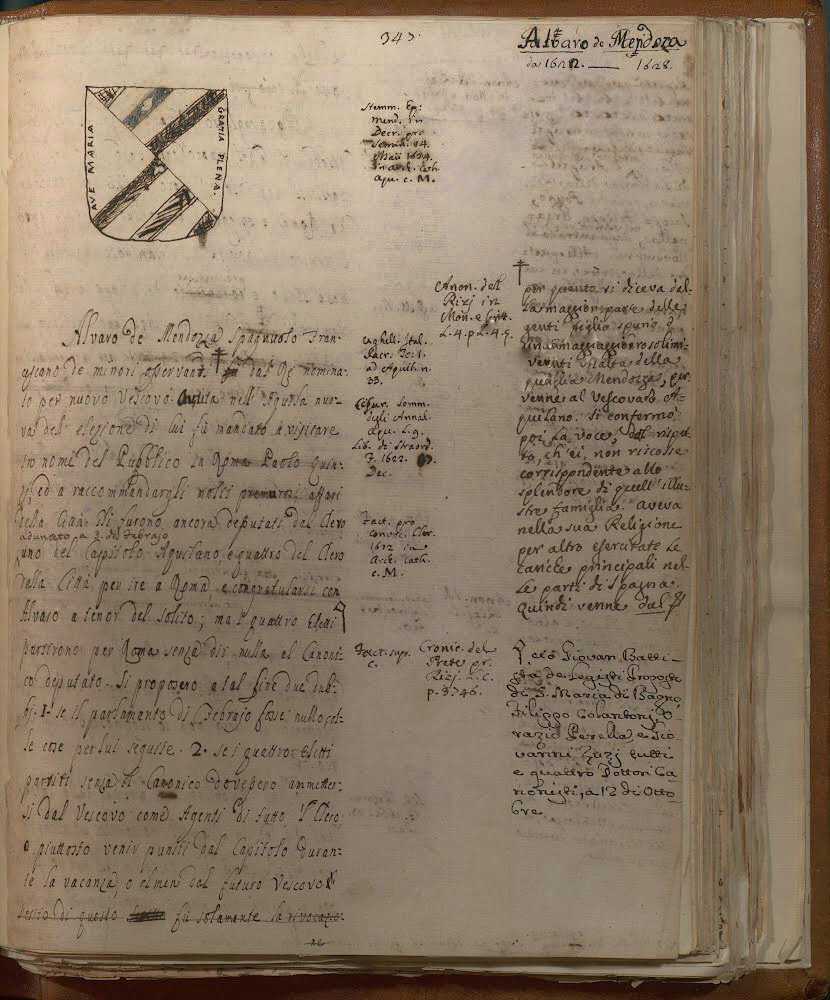 343.
Alvaro de Mendoza
da 1622. — 1628.
AVE MARIA
GRATIA PLENA.
Stemm. Ep:
Mend. in
Decr. pro
Semin. 14.
Maii 1624.
in Arch. Cath.
Aqu. c. M.
Alvaro de Mendozza Spagnuolo Fran-
cescano de minori osservant. dal Re nomina-
to per nuovo Vescovo. Avuta nell'Aquila nuo-
va dell'elezione di lui fù mandato à visitare
in nome del Pubblico in Roma Paolo Quin-
zj ed a raccommandargli molti premurosi affari
della Città. Vi furono ancora deputati dal Clero
adunato a 3. di Febrajo
uno del Capitolo Aquilano, e quattro del Clero
della Città per ire a Roma e congratularsi con
Alvaro a tenor del solito; ma i quattro Eletti
partirono per Roma senza dir nulla al Canoni-
co deputato. Si proposero a tal fine due dub-
bj. 1. se il parlamento di Febrajo fosse nullo, col-
le cose per lui seguite. 2. se i quattro eletti
partiti senza il Canonico dovessero ammetter-
si dal Vescovo come Agenti di tutto il Clero,
o piuttosto venir puniti dal Capitolo duran-
te la vacanza, o almen dal futuro Vescovo
di questo fù solamente la rivocazio-
ne
Anon. del
Rizj in
Mon. e Critt.
L. 4. p L. 4. 9.
Ughell. Ital.
Sacr. To: 1.
ad Aquil. n.
33.
Cesur. Somm.
degli Annal.
Aqu. L. 9.
Lib. di Straord.
F. 1622.
Dec.
Fact. pro
convoc. Cler.
1622 in
Arch. Cath.
c. M.
Fact. supr.
c.
Cronic. del
Prete pr.
Rizj. L. C.
p. 3746.
per quanto si diceva dal
la maggior parte delle
genti figlio spurio
venuti
puglia Mendozza, per-
venne al Vescovato A-
quilano. Si confermò
poi la voce, dal rispet-
to, ch'ei, non riscosse
corrispondente allo
splendore di quell'illu-
stre famiglia. Aveva
nella sua Religione
per altro esercitate le
cariche principali nel-
le parti di Spagna.
quindi venne dal
cio Giovan Batti-
sta de Legisti Proposto
di S. Maria di Bagno,
Filippo Colantonj, O-
razio Perella, e Gio-
vanni Zuzj tutti
e quattro Dottori Ca
nonisti, a 12 di Otto
bre.